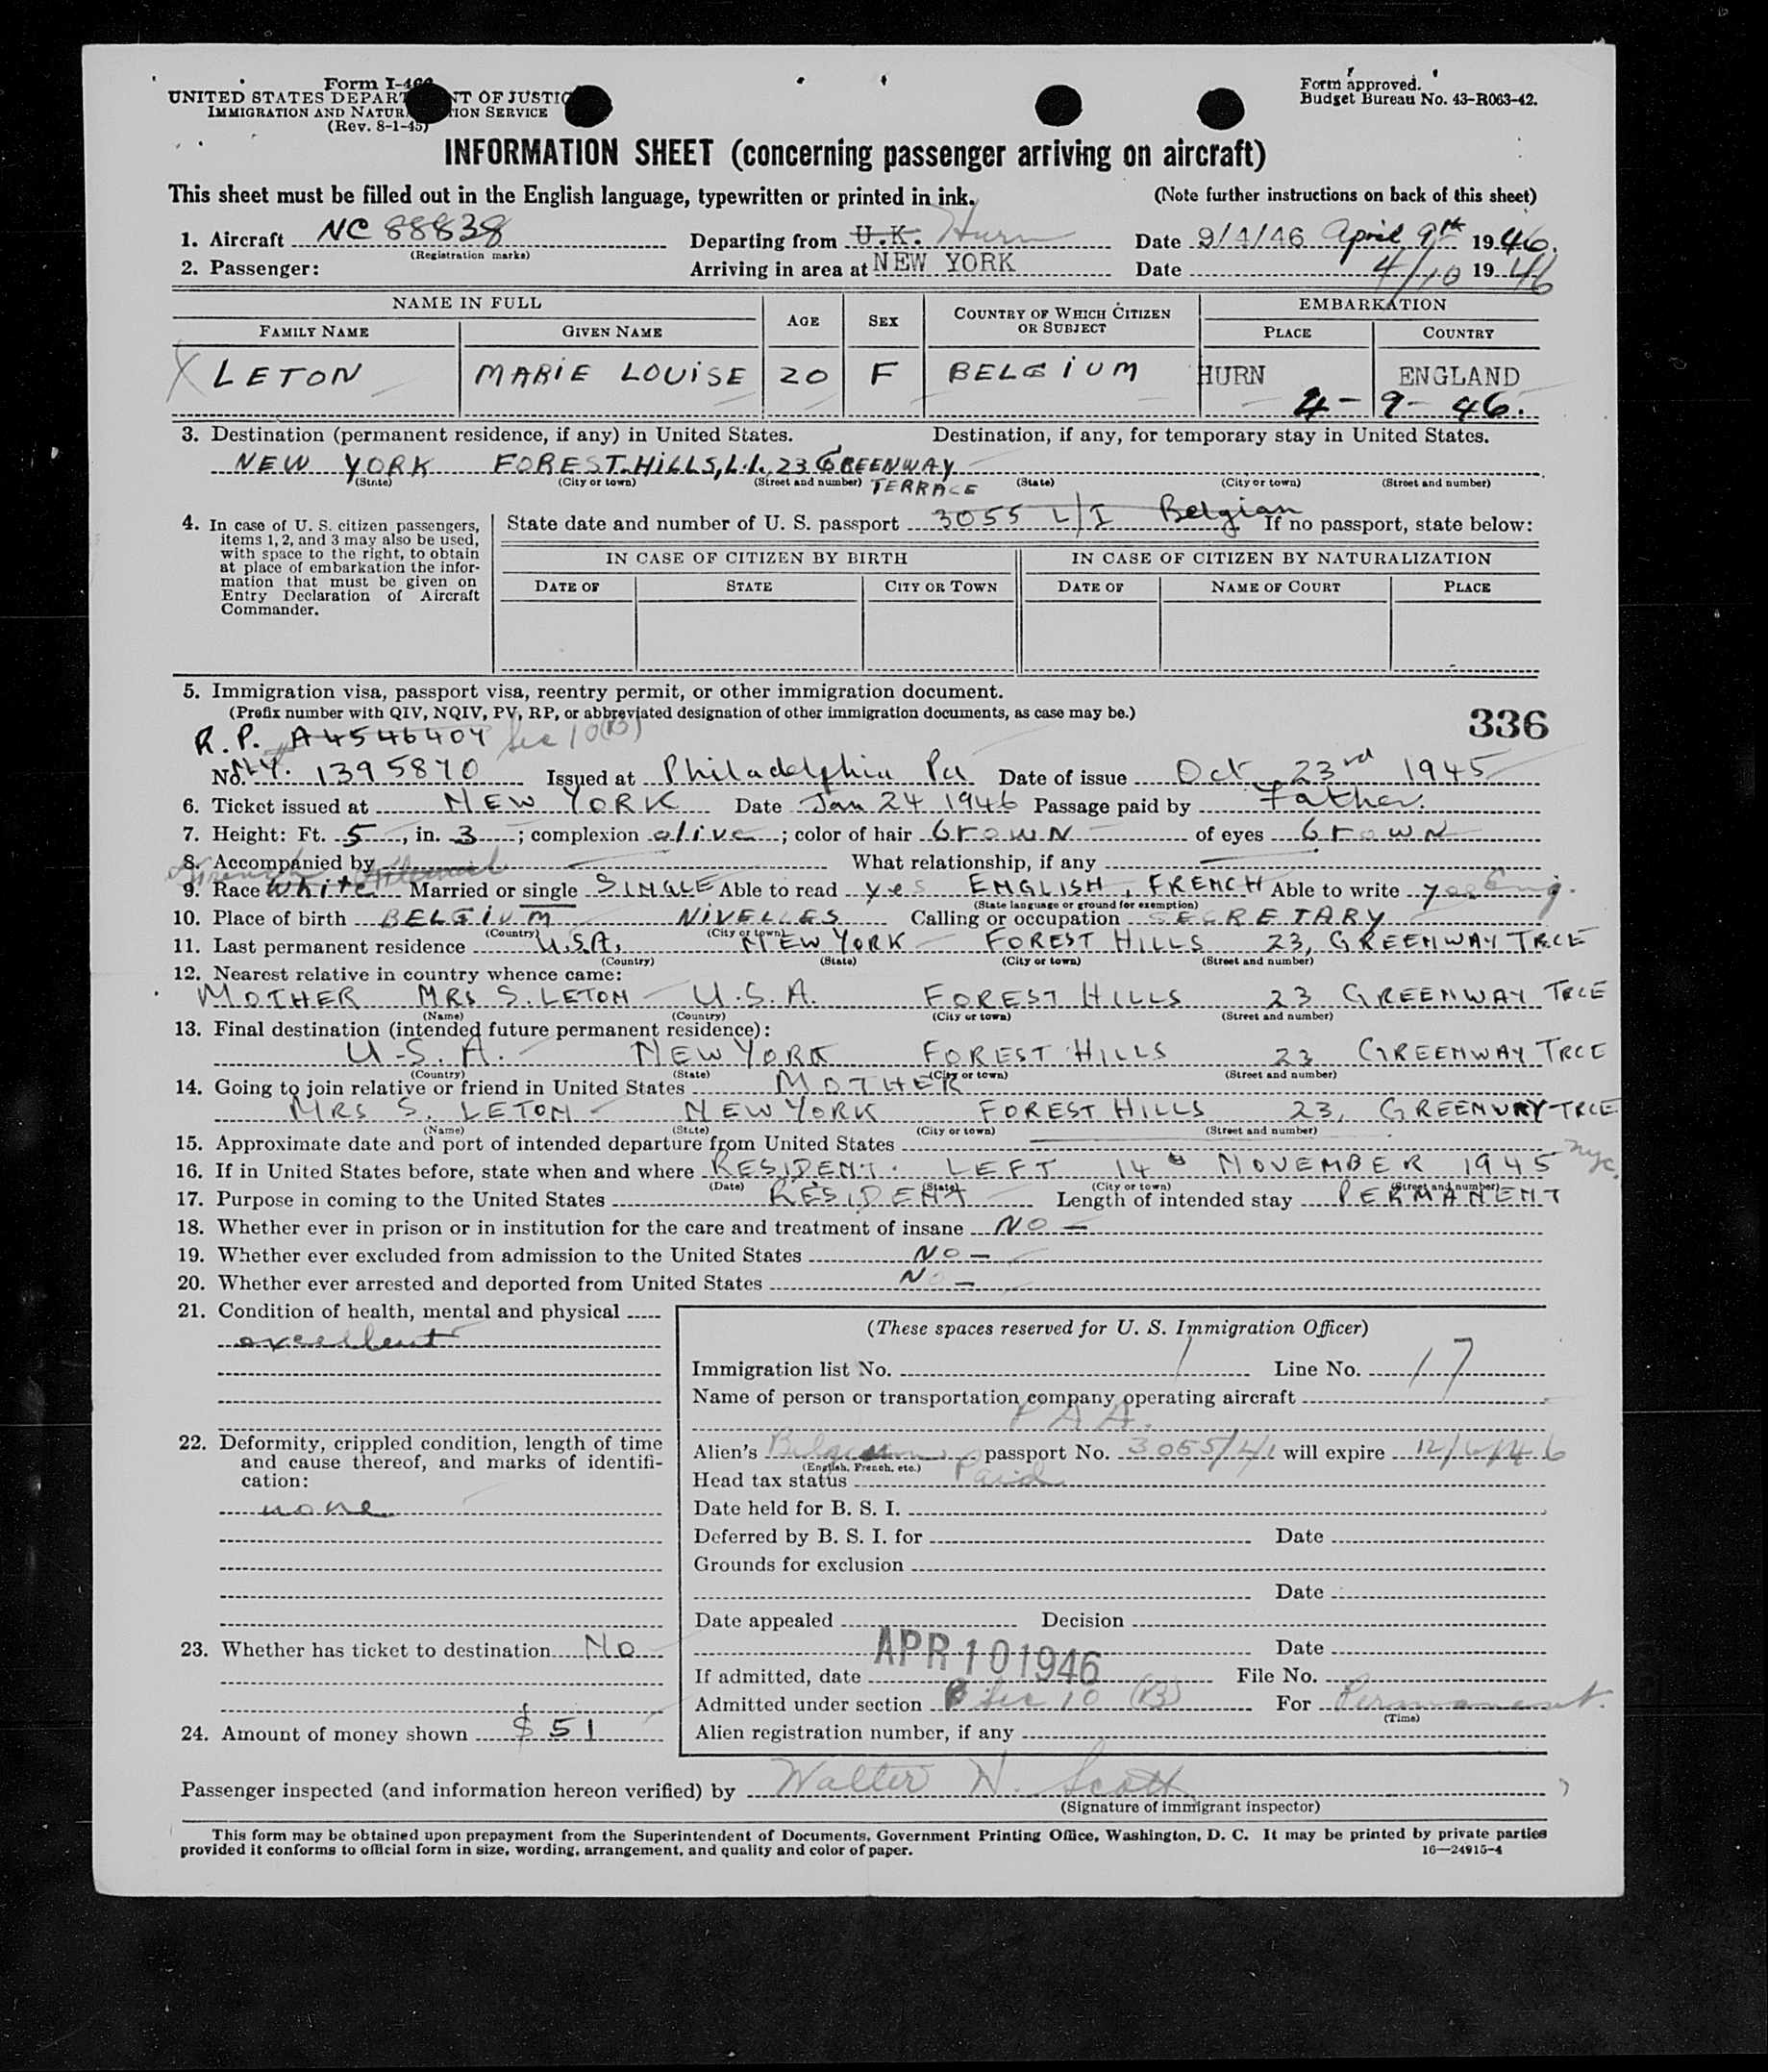 Form I-466
UNITED STATES DEPARTMENT OF JUSTICE
IMMIGRATION AND NATURALIZATION SERVICE
(Rev. 8-1-45)
Form approved.
Budget Bureau No. 43-R063-42.
INFORMATION SHEET (concerning passenger arriving on aircraft)
This sheet must be filled out in the English language, typewritten or printed in ink. (Note further instructions on back of this sheet)
1. Aircraft NC 88838 Departing from U.K. Hurn Date 9/4/46 April 9th 1946.
(Registration marks)
2. Passenger: Arriving in area at NEW YORK Date 4/10 1946
NAME IN FULL AGE SEX COUNTRY OF WHICH CITIZEN OR SUBJECT EMBARKATION
FAMILY NAME GIVEN NAME PLACE COUNTRY
X LETON MARIE LOUISE 20 F BELGIUM HURN ENGLAND
4-9-46.
3. Destination (permanent residence, if any) in United States. Destination, if any, for temporary stay in United States.
NEW YORK FOREST HILLS, L.I. 23 GREENWAY
(State) (City or town) (Street and number) TERRACE (State) (City or town) (Street and number)
4. In case of U. S. citizen passengers, items 1, 2, and 3 may also be used, with space to the right, to obtain at place of embarkation the information that must be given on Entry Declaration of Aircraft Commander.
State date and number of U. S. passport 3055 L/I Belgian If no passport, state below:
IN CASE OF CITIZEN BY BIRTH IN CASE OF CITIZEN BY NATURALIZATION
DATE OF STATE CITY OR TOWN DATE OF NAME OF COURT PLACE
5. Immigration visa, passport visa, reentry permit, or other immigration document.
(Prefix number with QIV, NQIV, PV, RP, or abbreviated designation of other immigration documents, as case may be.)
336
R.P. A4546404 Sec 10(B)
No. N.Y. 1395870 Issued at Philadelphia Pa Date of issue Oct 23rd 1945
6. Ticket issued at NEW YORK Date Jan 24 1946 Passage paid by Father.
7. Height: Ft. 5, in. 3; complexion olive; color of hair brown of eyes brown
8. Accompanied by What relationship, if any
9. Race White Married or single SINGLE Able to read yes ENGLISH, FRENCH Able to write yes Eng.
(State language or ground for exemption)
10. Place of birth BELGIUM NIVELLES Calling or occupation SECRETARY
(Country) (City or town)
11. Last permanent residence U.S.A. NEW YORK FOREST HILLS 23, GREENWAY TRCE
(Country) (State) (City or town) (Street and number)
12. Nearest relative in country whence came:
MOTHER MRS S. LETON U.S.A. FOREST HILLS 23 GREENWAY TRCE
(Name) (Country) (City or town) (Street and number)
13. Final destination (intended future permanent residence):
U.S.A. NEW YORK FOREST HILLS 23 GREENWAY TRCE
(Country) (State) (City or town) (Street and number)
14. Going to join relative or friend in United States MOTHER
MRS S. LETON NEW YORK FOREST HILLS 23, GREENWAY TRCE
(Name) (State) (City or town) (Street and number)
15. Approximate date and port of intended departure from United States
16. If in United States before, state when and where RESIDENT. LEFT 14 NOVEMBER 1945 nyc.
(Date) (State) (City or town) (Street and number)
17. Purpose in coming to the United States RESIDENT Length of intended stay PERMANENT
18. Whether ever in prison or in institution for the care and treatment of insane NO -
19. Whether ever excluded from admission to the United States NO -
20. Whether ever arrested and deported from United States NO -
21. Condition of health, mental and physical
excellent
22. Deformity, crippled condition, length of time and cause thereof, and marks of identification:
none
23. Whether has ticket to destination No
24. Amount of money shown $51
(These spaces reserved for U. S. Immigration Officer)
Immigration list No. 1 Line No. 17
Name of person or transportation company operating aircraft
PAA.
Alien's Belgium passport No. 3055/L/1 will expire 12/6/46
(English, French, etc.)
Head tax status Paid
Date held for B. S. I.
Deferred by B. S. I. for Date
Grounds for exclusion
Date
Date appealed Decision
Date
If admitted, date APR 10 1946 File No.
Admitted under section Sec 10 (B) For Permanent.
(Time)
Alien registration number, if any
Passenger inspected (and information hereon verified) by Walter N. Scott
(Signature of immigrant inspector)
This form may be obtained upon prepayment from the Superintendent of Documents, Government Printing Office, Washington, D. C. It may be printed by private parties
provided it conforms to official form in size, wording, arrangement, and quality and color of paper. 16—24915-4